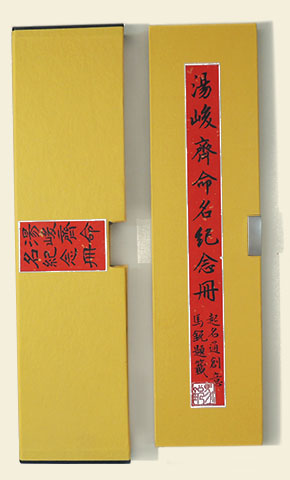 湯峻齊命
名紀念冊
湯峻齊命名紀念冊
起名通創意
馬銳題籤